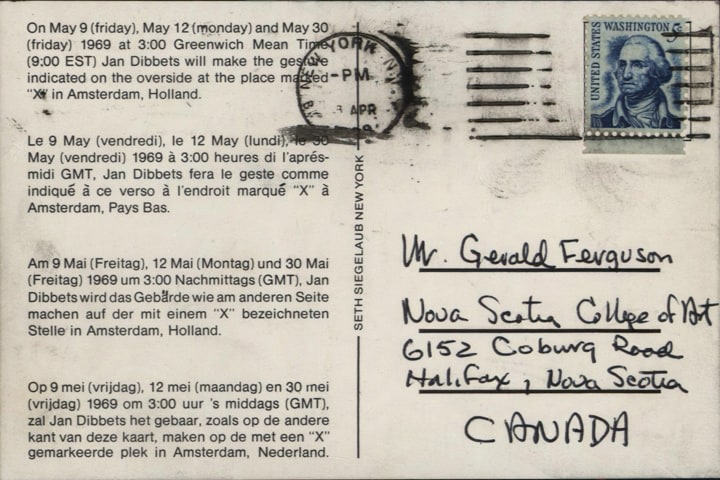 On May 9 (friday), May 12 (monday) and May 30
(friday) 1969 at 3:00 Greenwich Mean Time
(9:00 EST) Jan Dibbets will make the gesture
indicated on the overside at the place marked
"X" in Amsterdam, Holland.
Le 9 May (vendredi), le 12 May (lundi), le 30
May (vendredi) 1969 à 3:00 heures di l'aprés-
midi GMT, Jan Dibbets fera le geste comme
indiqué à ce verso à l'endroit marqué "X" à
Amsterdam, Pays Bas.
Am 9 Mai (Freitag), 12 Mai (Montag) und 30 Mai
(Freitag) 1969 um 3:00 Nachmittags (GMT), Jan
Dibbets wird das Gebärde wie am anderen Seite
machen auf der mit einem "X" bezeichneten
Stelle in Amsterdam, Holland.
Op 9 mei (vrijdag), 12 mei (maandag) en 30 mei
(vrijdag) 1969 om 3:00 uur 's middags (GMT),
zal Jan Dibbets het gebaar, zoals op de andere
kant van deze kaart, maken op de met een "X"
gemarkeerde plek in Amsterdam, Nederland.
SETH SIEGELAUB NEW YORK
NEW YORK, N.Y.
PM
APR
UNITED STATES
WASHINGTON 5c
Mr. Gerald Ferguson
Nova Scotia College of Art
6152 Coburg Road
Halifax, Nova Scotia
CANADA